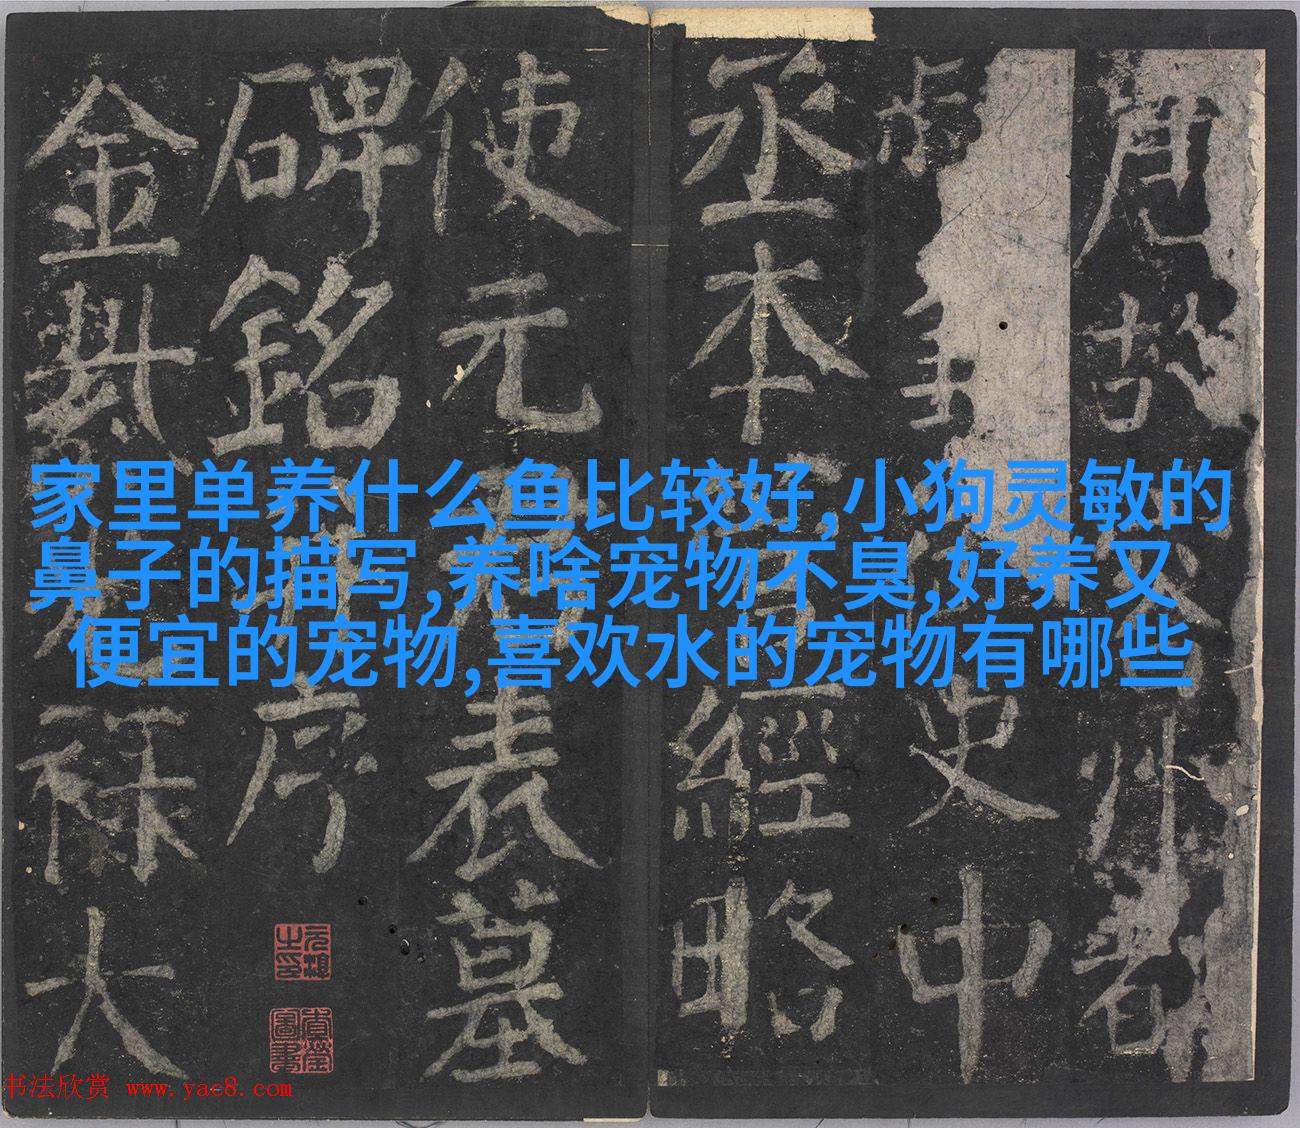 唐故州都
史中
丞本經略
使元表墓
碑銘序
金祿大
家里单养什么鱼比较好,小狗灵敏的
鼻子的描写,养啥宠物不臭,好养又
便宜的宠物,喜欢水的宠物有哪些
书法欣赏 www.yac8.com